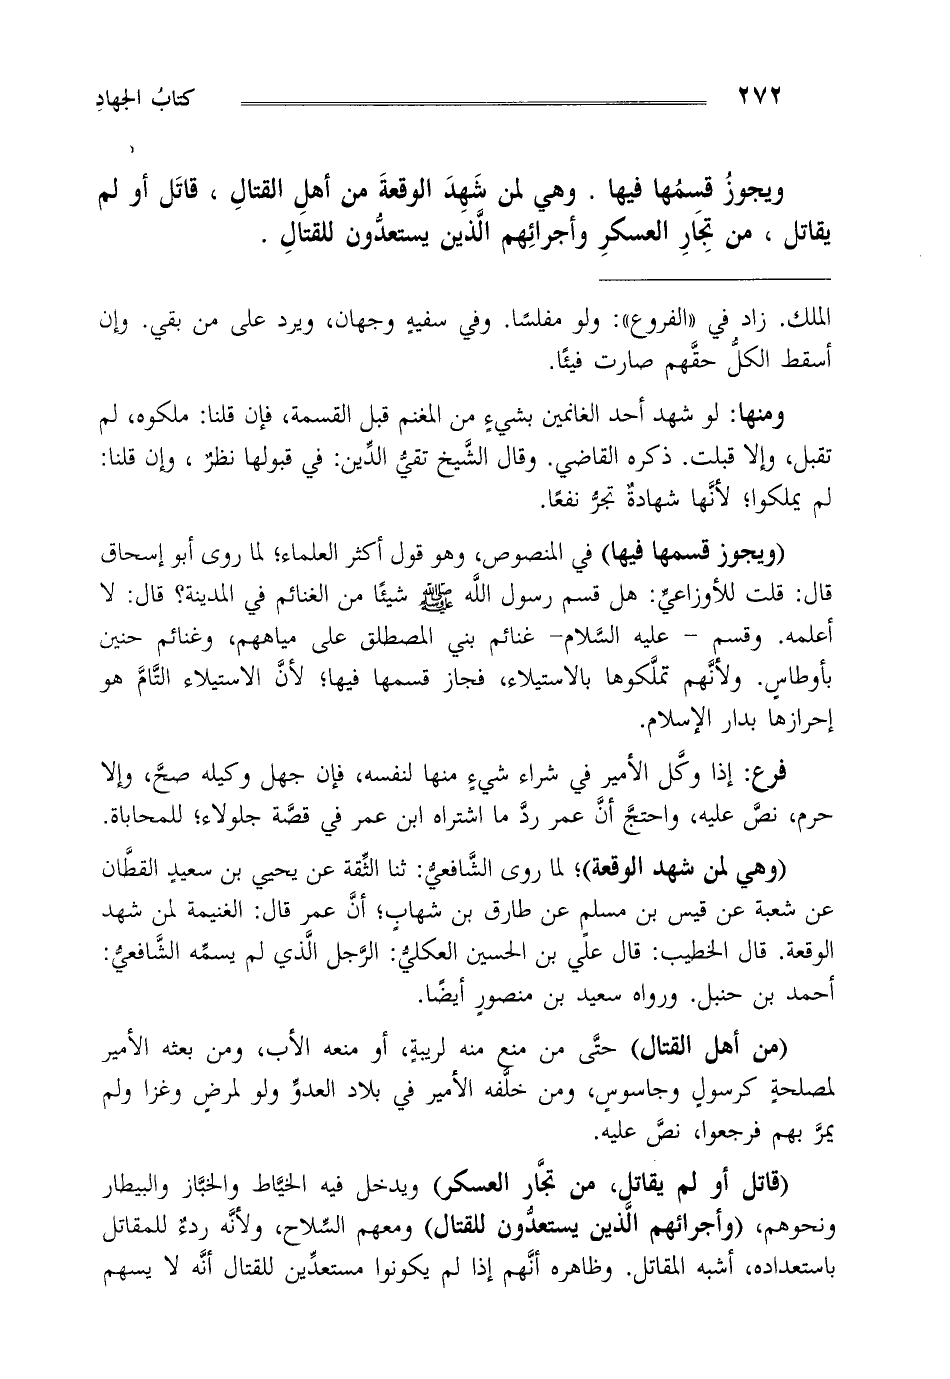 ٢٧٢ كتابُ الجهادِ
ويجوزُ قسمُها فيها . وهي لمن شَهِدَ الوقعةَ من أهلِ القتالِ ، قاتَل أو لم
يقاتل ، من تِجَارِ العسكرِ وأجرائِهم الَّذين يستعدُّون للقتالِ .
الملك. زاد في «الفروع»: ولو مفلسًا. وفي سفيهٍ وجهان، ويرد على من بقي. وإن
أسقط الكلُّ حقَّهم صارت فيئًا.
ومنها: لو شهد أحد الغانمين بشيءٍ من المغنم قبل القسمة، فإن قلنا: ملكوه، لم
تقبل، وإلا قبلت. ذكره القاضي. وقال الشَّيخ تقيُّ الدِّين: في قبولها نظرٌ ، وإن قلنا:
لم يملكوا؛ لأنَّها شهادةٌ تجرُّ نفعًا.
(ويجوز قسمها فيها) في المنصوص، وهو قول أكثر العلماء؛ لما روى أبو إسحاق
قال: قلت للأوزاعيِّ: هل قسم رسول اللَّه ﷺ شيئًا من الغنائم في المدينة؟ قال: لا
أعلمه. وقسم - عليه السَّلام- غنائم بني المصطلق على مياههم، وغنائم حنين
بأوطاسٍ. ولأنَّهم تملَّكوها بالاستيلاء، فجاز قسمها فيها؛ لأنَّ الاستيلاء التَّامَّ هو
إحرازها بدار الإسلام.
فرع: إذا وكَّل الأمير في شراء شيءٍ منها لنفسه، فإن جهل وكيله صحَّ، وإلا
حرم، نصَّ عليه، واحتجَّ أنَّ عمر ردَّ ما اشتراه ابن عمر في قصَّة جلولاء؛ للمحاباة.
(وهي لمن شهد الوقعة)؛ لما روى الشَّافعيُّ: ثنا الثِّقة عن يحيي بن سعيدٍ القطَّان
عن شعبة عن قيس بن مسلمٍ عن طارق بن شهابٍ؛ أنَّ عمر قال: الغنيمة لمن شهد
الوقعة. قال الخطيب: قال علي بن الحسين العكليُّ: الرَّجل الَّذي لم يسمِّه الشَّافعيُّ:
أحمد بن حنبل. ورواه سعيد بن منصورٍ أيضًا.
(من أهل القتال) حتَّى من منع منه لريبةٍ، أو منعه الأب، ومن بعثه الأمير
لمصلحةٍ كرسولٍ وجاسوسٍ، ومن خلَّفه الأمير في بلاد العدوِّ ولو لمرضٍ وغزا ولم
يمرَّ بهم فرجعوا، نصَّ عليه.
(قاتل أو لم يقاتل، من تجَّار العسكر) ويدخل فيه الخيَّاط والخبَّاز والبيطار
ونحوهم، (وأجرائهم الَّذين يستعدُّون للقتال) ومعهم السِّلاح، ولأنَّه ردءٌ للمقاتل
باستعداده، أشبه المقاتل. وظاهره أنَّهم إذا لم يكونوا مستعدِّين للقتال أنَّه لا يسهم